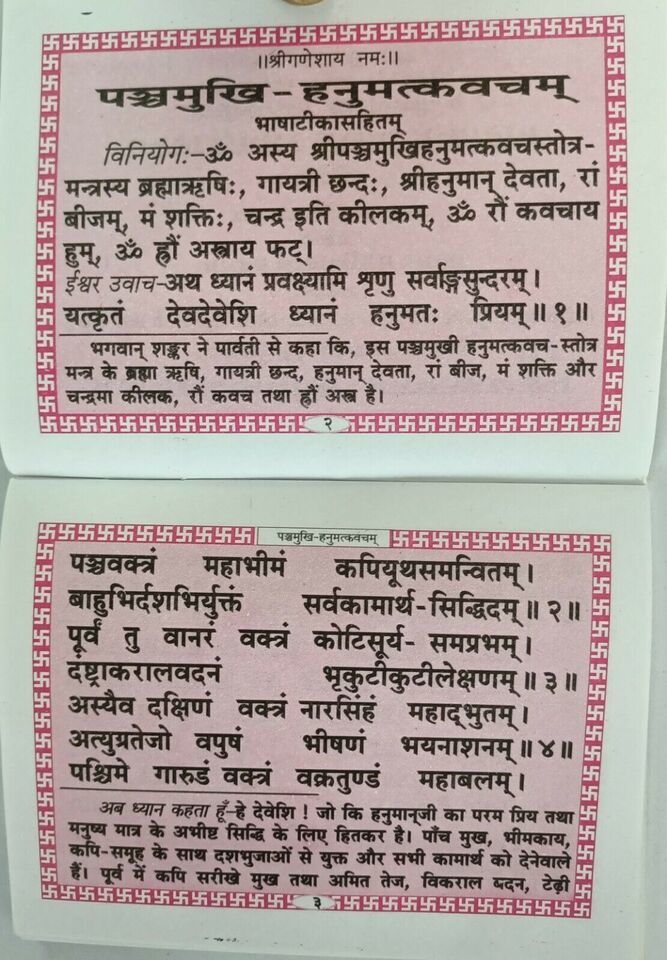 ।।श्रीगणेशाय नमः।।
पञ्चमुखि-हनुमत्कवचम्
भाषाटीकासहितम्
विनियोगः-ॐ अस्य श्रीपञ्चमुखिहनुमत्कवचस्तोत्र-
मन्त्रस्य ब्रह्माऋषिः, गायत्री छन्दः, श्रीहनुमान् देवता, रां
बीजम्, मं शक्तिः, चन्द्र इति कीलकम्, ॐ रौं कवचाय
हुम्, ॐ ह्रौं अस्त्राय फट्।
ईश्वर उवाच-अथ ध्यानं प्रवक्ष्यामि शृणु सर्वाङ्गसुन्दरम्।
यत्कृतं देवदेवेशि ध्यानं हनुमतः प्रियम्॥१॥
भगवान् शङ्कर ने पार्वती से कहा कि, इस पञ्चमुखी हनुमत्कवच-स्तोत्र
मन्त्र के ब्रह्मा ऋषि, गायत्री छन्द, हनुमान् देवता, रां बीज, मं शक्ति और
चन्द्रमा कीलक, रौं कवच तथा ह्रौं अस्त्र है।
२
पञ्चमुखि-हनुमत्कवचम्
पञ्चवक्त्रं महाभीमं कपियूथसमन्वितम्।
बाहुभिर्दशभिर्युक्तं सर्वकामार्थ-सिद्धिदम्॥२॥
पूर्वं तु वानरं वक्त्रं कोटिसूर्य-समप्रभम्।
दंष्ट्राकरालवदनं भृकुटीकुटीलेक्षणम्॥३॥
अस्यैव दक्षिणं वक्त्रं नारसिंहं महाद्भुतम्।
अत्युग्रतेजो वपुषं भीषणं भयनाशनम्॥४॥
पश्चिमे गारुडं वक्त्रं वक्रतुण्डं महाबलम्।
अब ध्यान कहता हूँ-हे देवेशि! जो कि हनुमान्‌जी का परम प्रिय तथा
मनुष्य मात्र के अभीष्ट सिद्धि के लिए हितकर है। पाँच मुख, भीमकाय,
कपि-समूह के साथ दशभुजाओं से युक्त और सभी कामार्थ को देनेवाले
हैं। पूर्व में कपि सरीखे मुख तथा अमित तेज, विकराल वदन, टेढ़ी
३